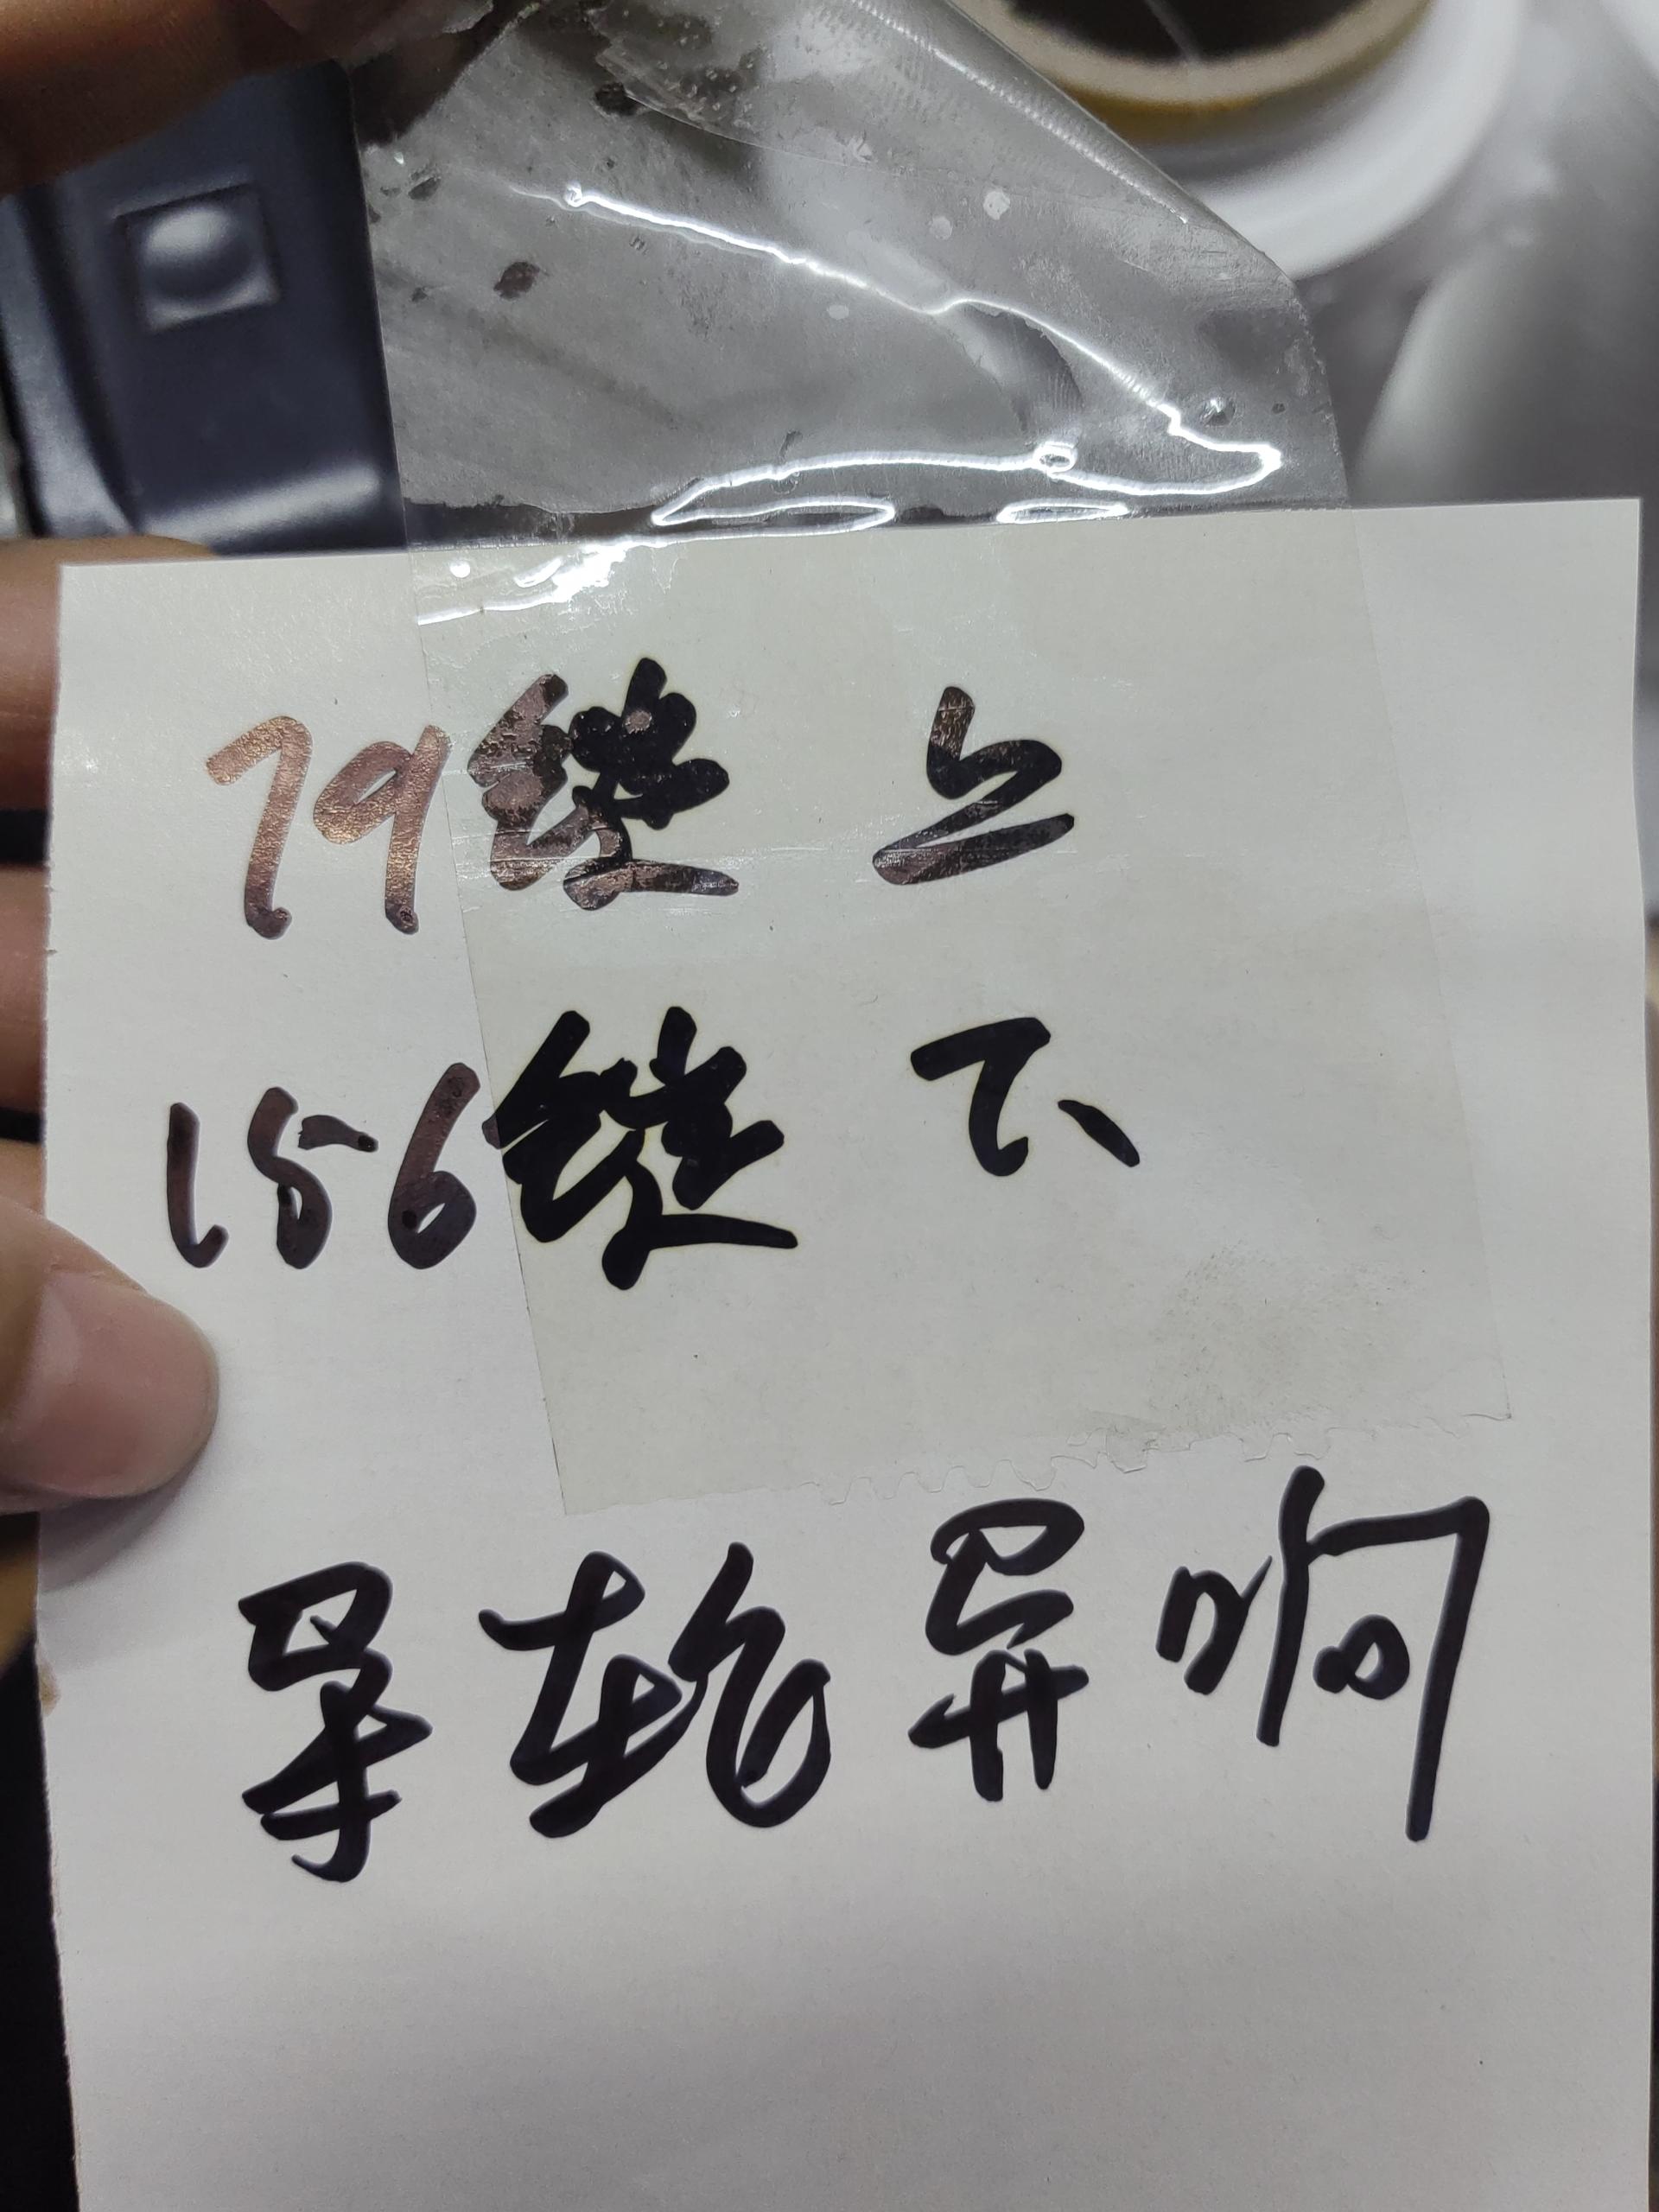 79锭 上
156锭 下
导轮异响